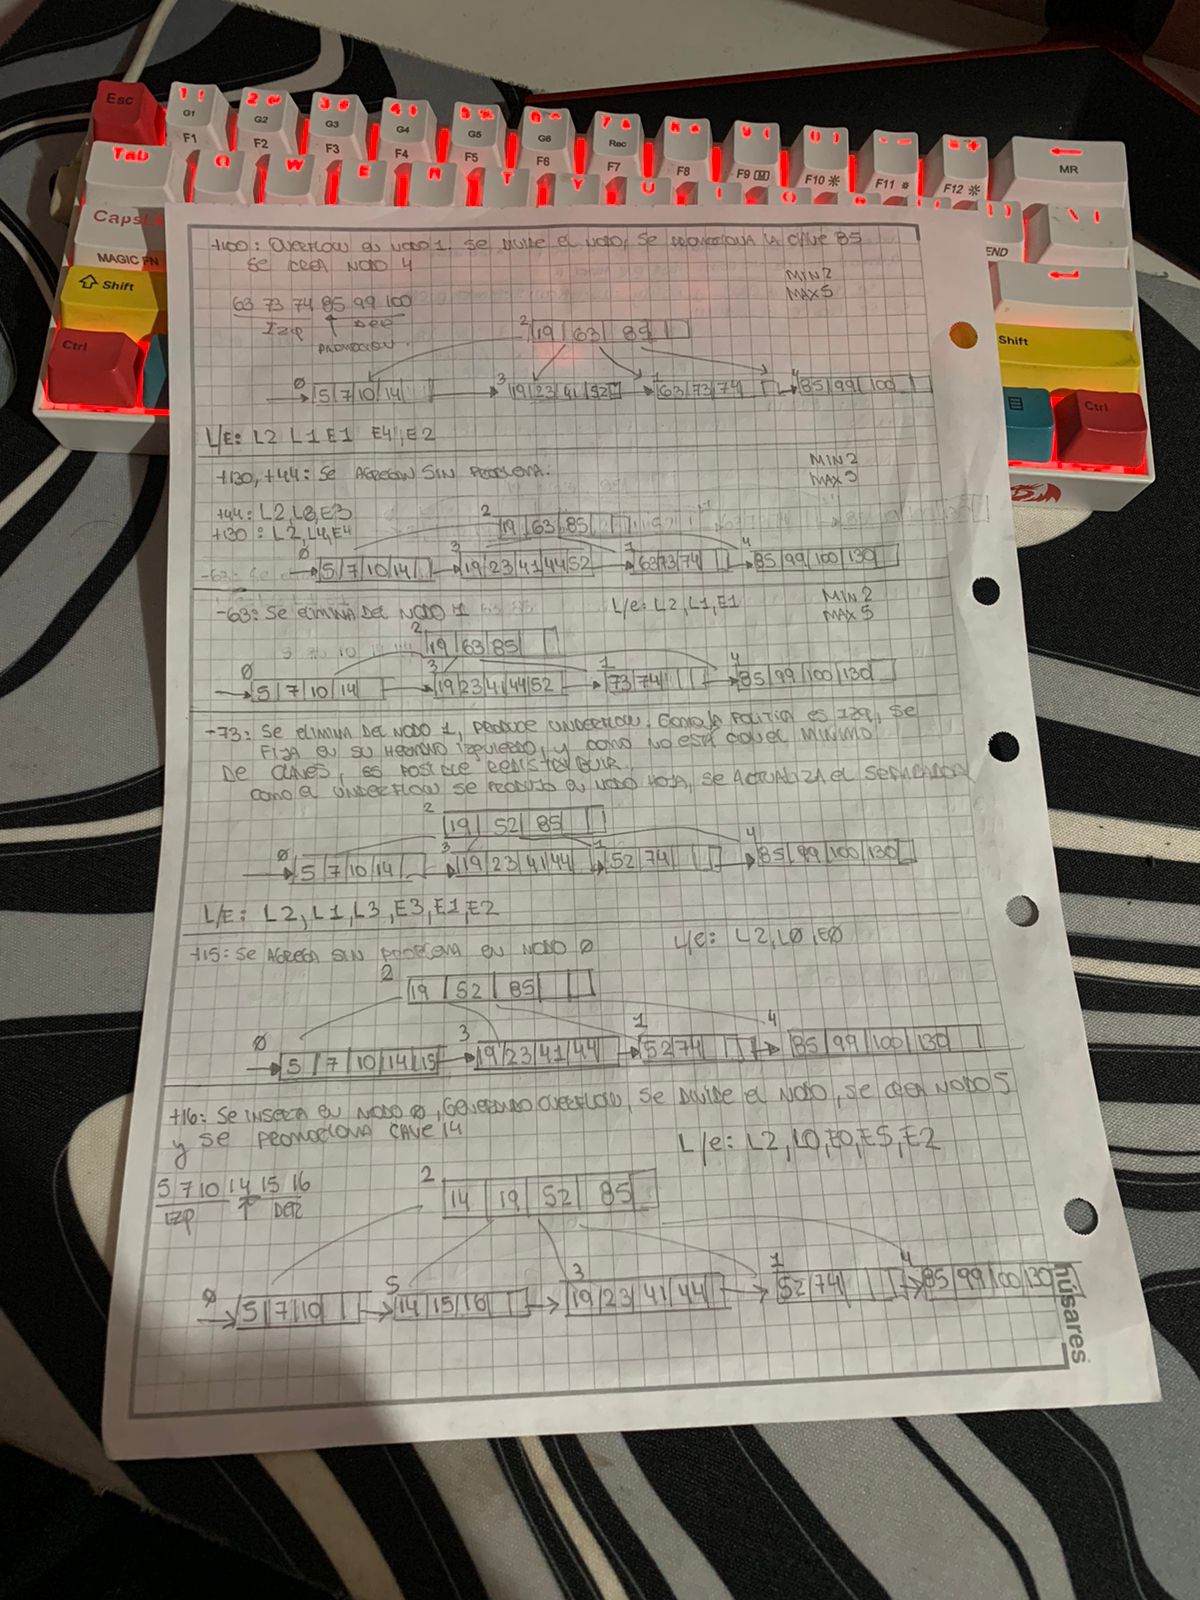 Esc
1 ! G1 F1
2 G2 F2
3 G3 F3
4 G4 F4
5 G5 F5
6 G6 F6
7 Rec F7
8 F8
9 F9 M
F10
F11
F12
MR
Tab Q W E R T Y U I
CapsL
MAGIC FN
END
Shift
Shift
Ctrl
Ctrl
+100: OVERFLOW EN NODO 1. SE DIVIDE EL NODO, SE PROMOCIONA LA CLAVE 85.
SE CREA NODO 4
MIN 2
MAX 5
63 73 74 85 99 100
IZQ ↑ DER
PROMOCION.
2 19 | 63 | 85
0 5 | 7 | 10 | 14 3 19 | 23 | 41 | 52 1 63 | 73 | 74 4 85 | 99 | 100
L/E: L2 L1 E1 E4, E2
+130, +44: SE AGREGAN SIN PROBLEMA.
MIN 2
MAX 5
+44: L2, L3, E3
+130: L2, L4, E4
2 19 | 63 | 85
0 5 | 7 | 10 | 14 3 19 | 23 | 41 | 44 | 52 1 63 | 73 | 74 4 85 | 99 | 100 | 130
-63: Se elimina DEL NODO 1 L/e: L2, L1, E1
MIN 2
MAX 5
2 19 | 63 | 85
0 5 | 7 | 10 | 14 3 19 | 23 | 41 | 44 | 52 1 73 | 74 4 85 | 99 | 100 | 130
-73: SE ELIMINA DEL NODO 1, PRODUCE UNDERFLOW. COMO LA POLITICA ES IZQ, SE
FIJA EN SU HERMANO IZQUIERDO, Y COMO NO ESTÁ CON EL MINIMO
DE CLAVES, ES POSIBLE REDISTRIBUIR.
COMO EL UNDERFLOW SE PRODUJO EN NODO HOJA, SE ACTUALIZA EL SEPARADOR
2 19 | 52 | 85
0 5 | 7 | 10 | 14 3 19 | 23 | 41 | 44 1 52 | 74 4 85 | 99 | 100 | 130
L/E: L2, L1, L3, E3, E1, E2
+15: SE AGREGA SIN PROBLEMA EN NODO 0 L/e: L2, L0, E0
2 19 | 52 | 85
0 5 | 7 | 10 | 14 | 15 3 19 | 23 | 41 | 44 1 52 | 74 4 85 | 99 | 100 | 130
+16: SE INSERTA EN NODO 0, GENERANDO OVERFLOW, SE DIVIDE EL NODO, SE CREA NODO 5
y SE PROMOCIONA CLAVE 14
L/e: L2, L0, E0, E5, E2
5 7 10 14 15 16
IZQ ↑ DER
2 14 | 19 | 52 | 85
0 5 | 7 | 10 5 14 | 15 | 16 3 19 | 23 | 41 | 44 1 52 | 74 4 85 | 99 | 100 | 130
húsares